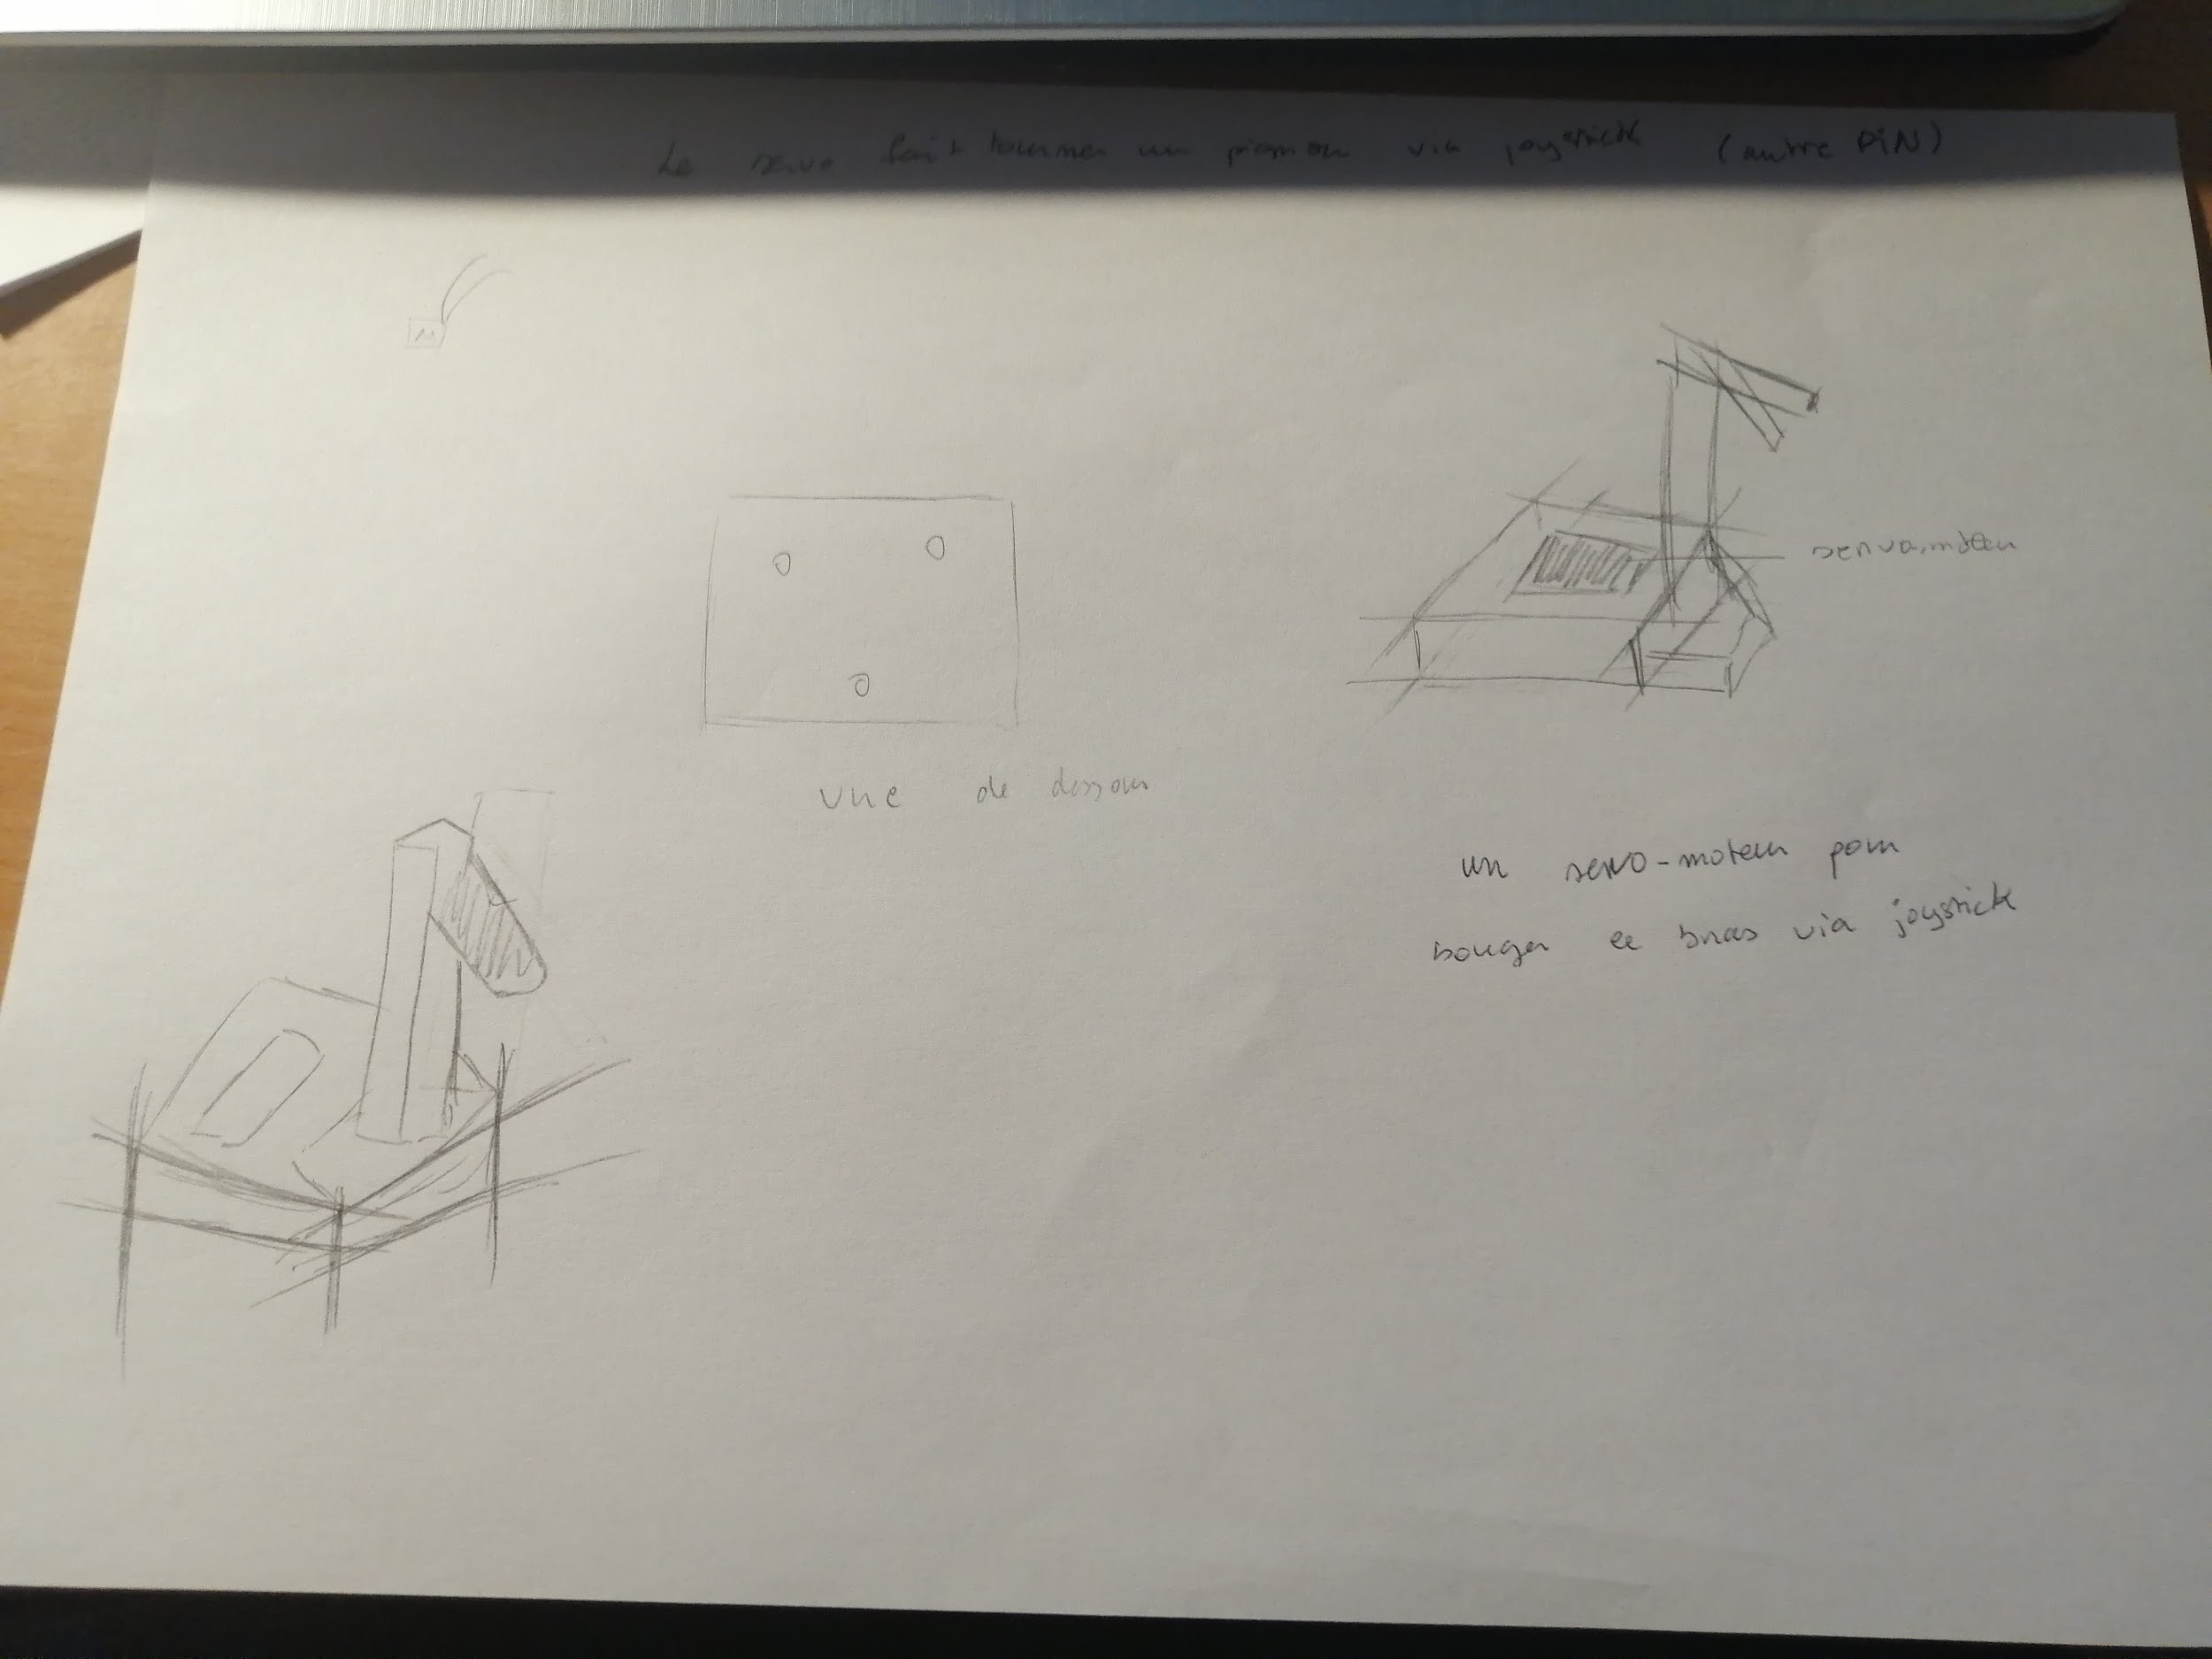 Le servo fait tourner un pignon via joystick (autre PIN)
M
servomoteur
vue de dessous
un servo-moteur pour
bouger le bras via joystick